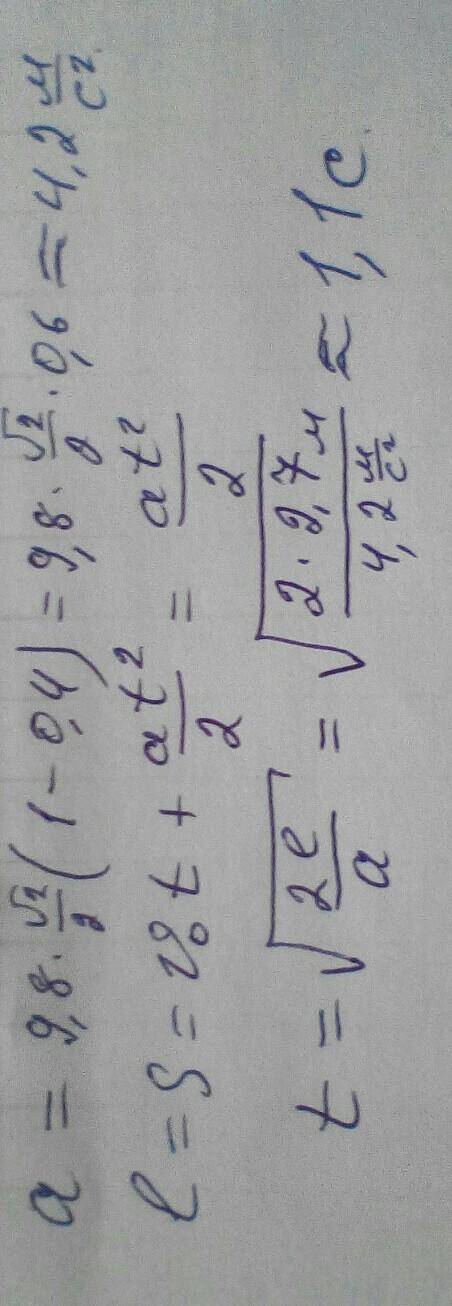 a = 9,8 · √2/2 (1 - 0,4) = 9,8 · √2/2 · 0,6 = 4,2 м/с².
l = S = v₀t + at²/2 = at²/2
t = √(2l/a) = √(2 · 2,7 м / 4,2 м/с²) ≈ 1,1 с.